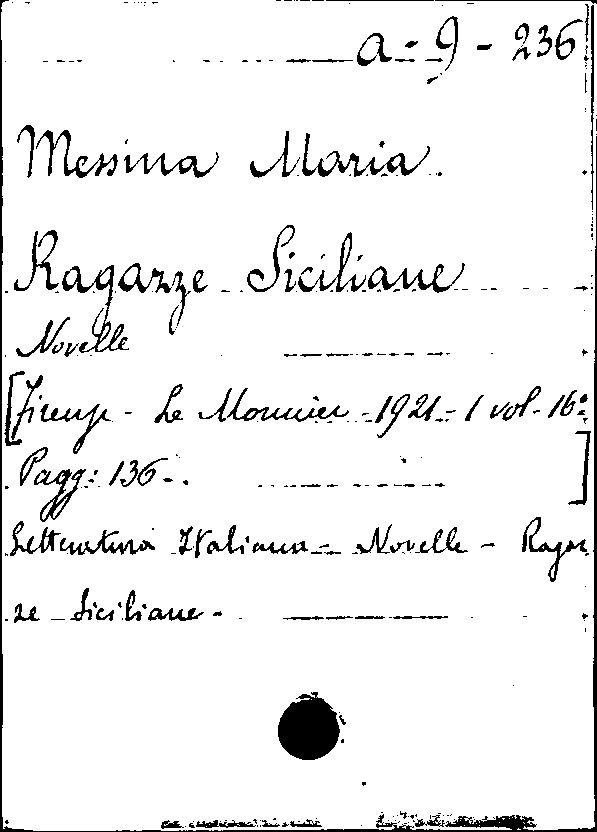 a - 9 - 236
Messina Maria.
Ragazze Siciliane
Novelle
[Firenze - Le Monnier - 1921 - 1 vol - 16°
Pagg: 136 - . ]
Letteratura Italiana - Novelle - Ragaz
ze Siciliane -